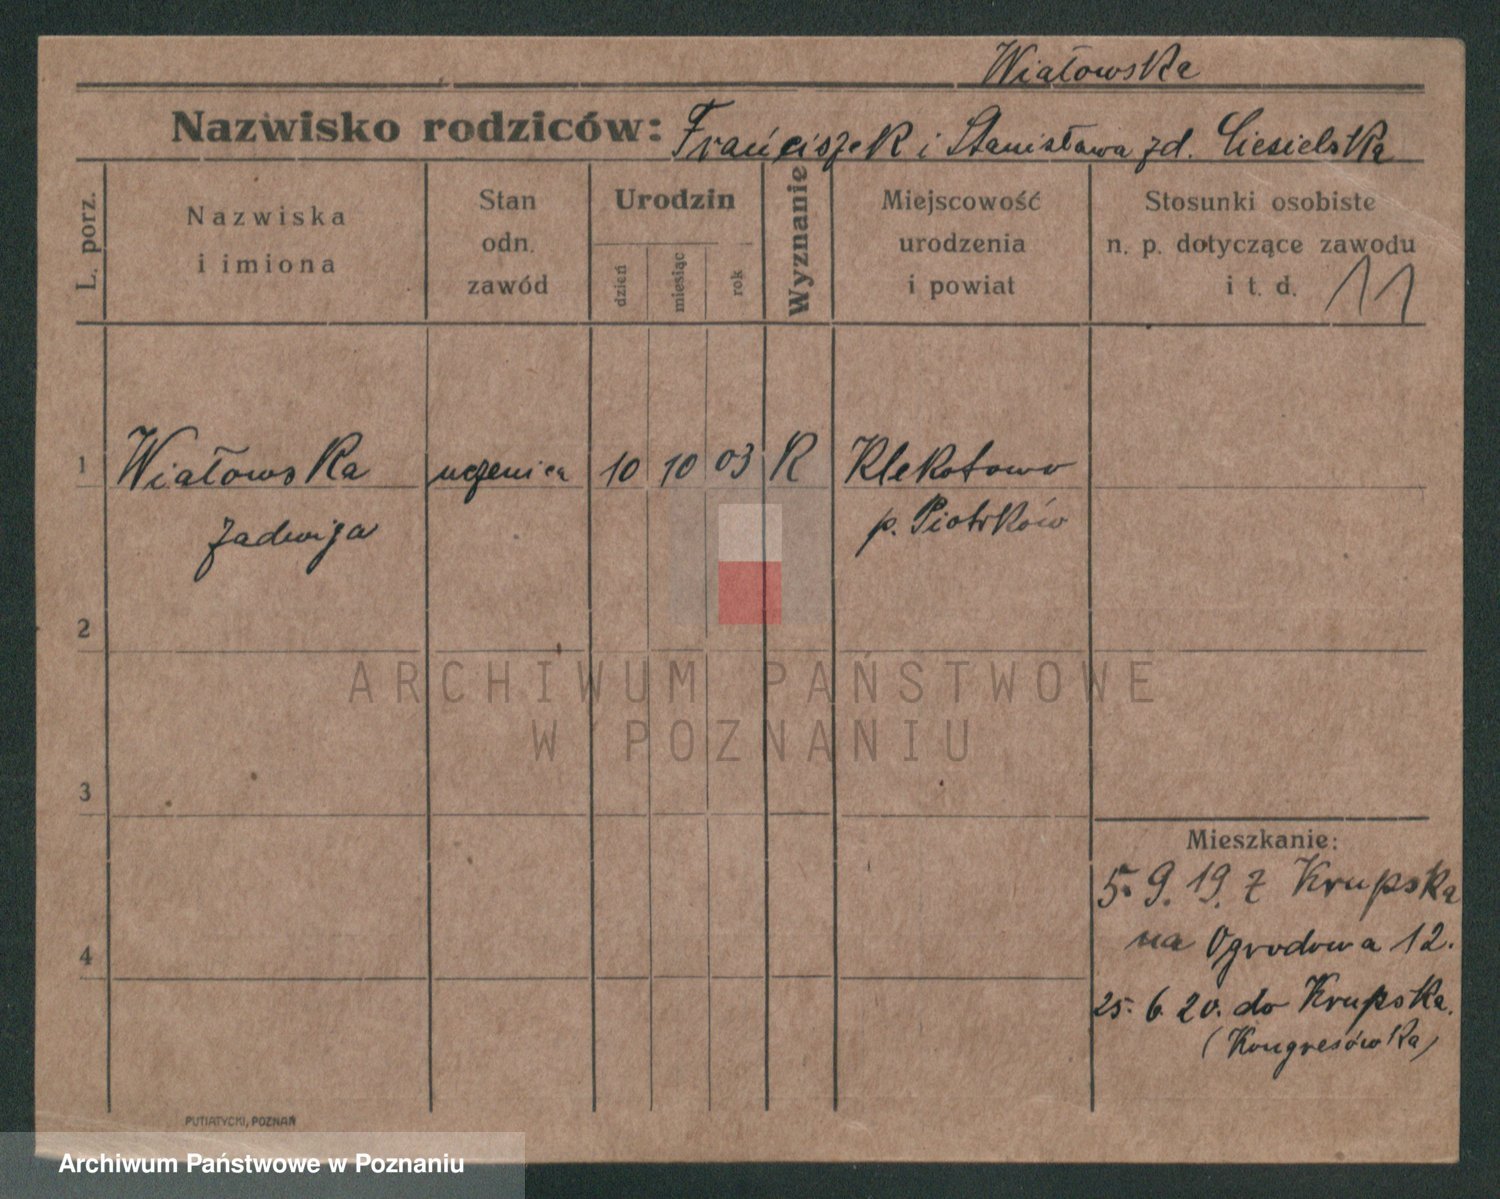 Wiałowska
Nazwisko rodziców: Franciszek i Stanisława zd. Ciesielska
L. porz.
Nazwiska
i imiona
Stan
odn.
zawód
Urodzin
dzień
miesiąc
rok
Wyznanie
Miejscowość
urodzenia
i powiat
Stosunki osobiste
n. p. dotyczące zawodu
i t. d. 11
1 Wiałowska uczenica 10 10 03 K Klekotowo
Jadwiga p. Piotrków
2
ARCHIWUM PAŃSTWOWE
W POZNANIU
3
Mieszkanie:
5. 9. 19. z Krupska
na Ogrodowa 12.
4
25. 6. 20. do Krupska.
(Kongresówka)
PUTIATYCKI, POZNAŃ
Archiwum Państwowe w Poznaniu